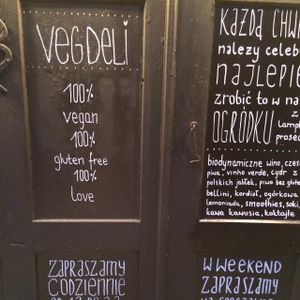 VEGDELI
100%
vegan
100%
gluten free
100%
love
ZAPRASZAMY
CODZIENNIE
KAŻDĄ CHWI
należy celeb
NAJLEPIE
zrobić to w na
OGRÓDKU z
lampk
prosec
biodynamiczne wino, czes
piwa, vinho verde, cydr z
polskich jabłek, piwo bez glute
bellini, kordiał, ogórkowa
lemoniada, smoothies, soki,
kawa kawusia, koktajle
W WEEKEND
ZAPRASZAMY